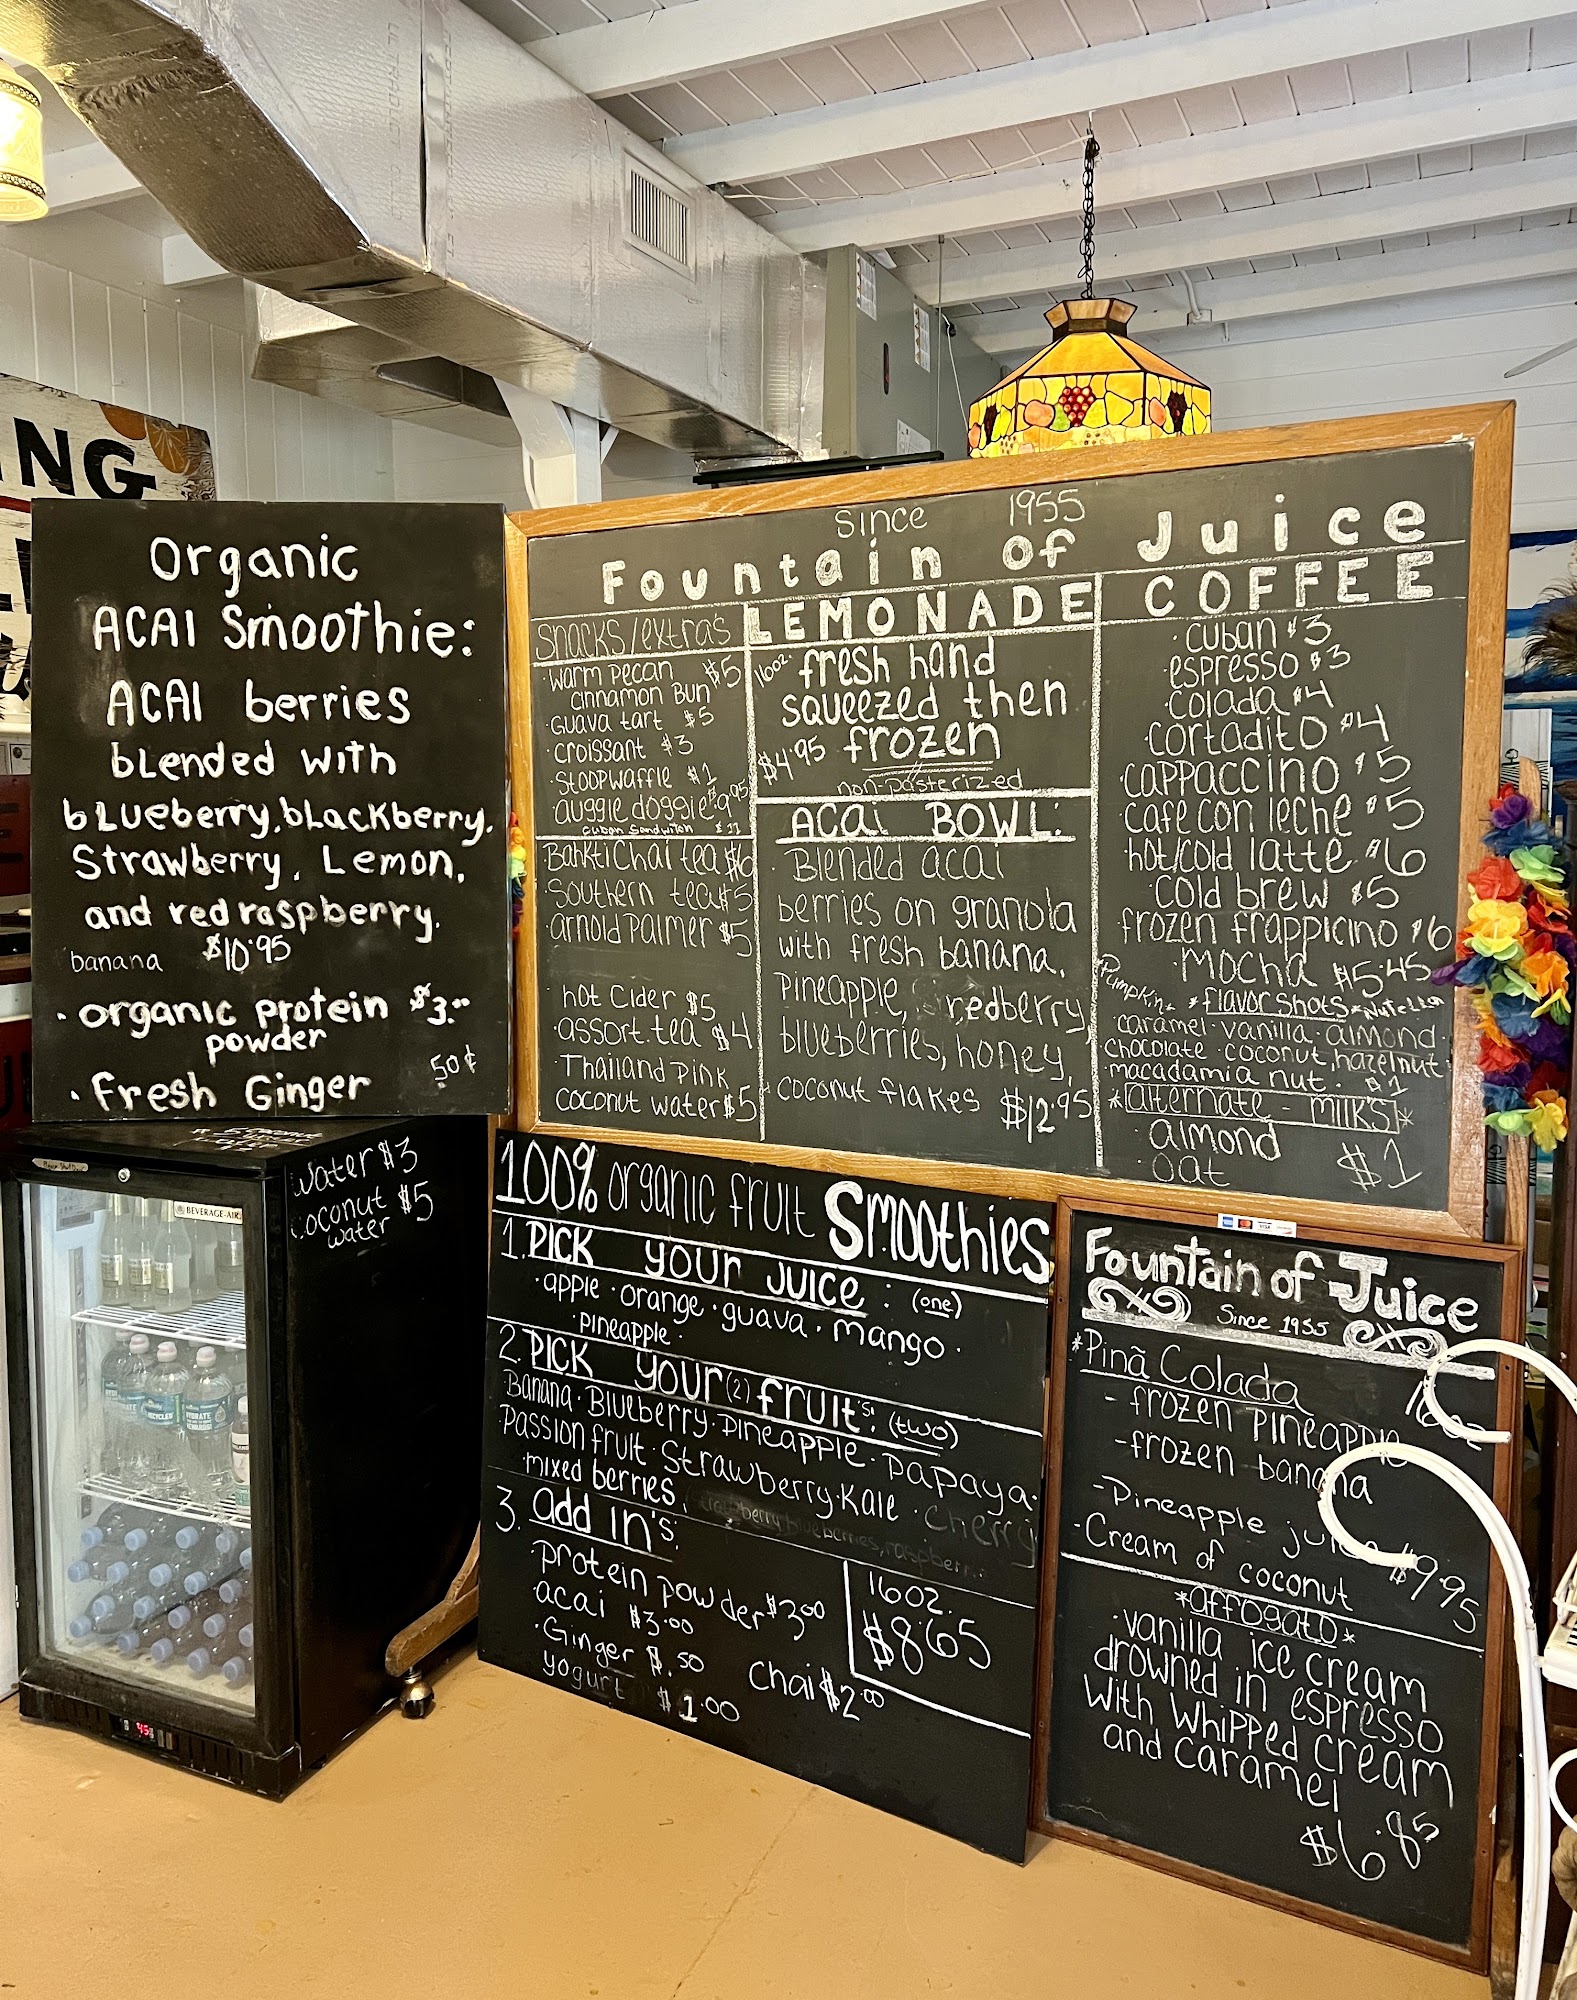 NG
Organic
ACAI Smoothie:
ACAI berries
blended with
blueberry, blackberry,
Strawberry, Lemon,
and red raspberry.
banana $10.95
· organic protein $3.00
powder
· Fresh Ginger 50¢
water $3
coconut $5
water
BEVERAGE-AIR
since 1955
Fountain of Juice
snacks/extras
warm pecan $5
cinnamon Bun
·Guava tart $5
·croissant $3
·Stoopwaffle $1
·auggie doggie $9.95
cuban sandwich
·BahktiChai tea $6
·Southern tea $5
·arnold Palmer $5
hot Cider $5
·assort. tea $4
·Thailand Pink
coconut water $5
LEMONADE
16oz. fresh hand
squeezed then
$4.95 frozen
non-pasterized
Acai BOWL:
Blended acai
berries on granola
with fresh banana,
pineapple, redberry
blueberries, honey,
coconut flakes $12.95
COFFEE
·cuban $3
·espresso $3
·colada $4
·cortadito $4
·cappaccino $5
·cafe con leche $5
hot/cold latte $6
·cold brew $5
·frozen frappicino $6
·Mocha $5.45
Pumpkin * flavor shots * Nutella
·caramel·vanilla·almond·
chocolate·coconut, hazelnut·
·macadamia nut. $1
*alternate - milks*
·almond $1
·oat
100% organic fruit Smoothies
1. PICK your juice: (one)
·apple·orange·guava·mango·
·pineapple·
2. PICK your (2) fruit's: (two)
Banana·Blueberry·Pineapple·papaya·
Passionfruit·Strawberry·Kale·Cherry
·mixed berries
3. add in's:
·protein powder $3.00
·acai $3.00
·Ginger $.50
yogurt $1.00
chai $2.00
16oz.
$8.65
Fountain of Juice
Since 1955
*Pinã Colada 16oz
- frozen pineapple
-frozen banana
-Pineapple juice $9.95
-Cream of coconut
*affogato*
·vanilla ice cream
drowned in espresso
with whipped cream
and caramel
$6.85